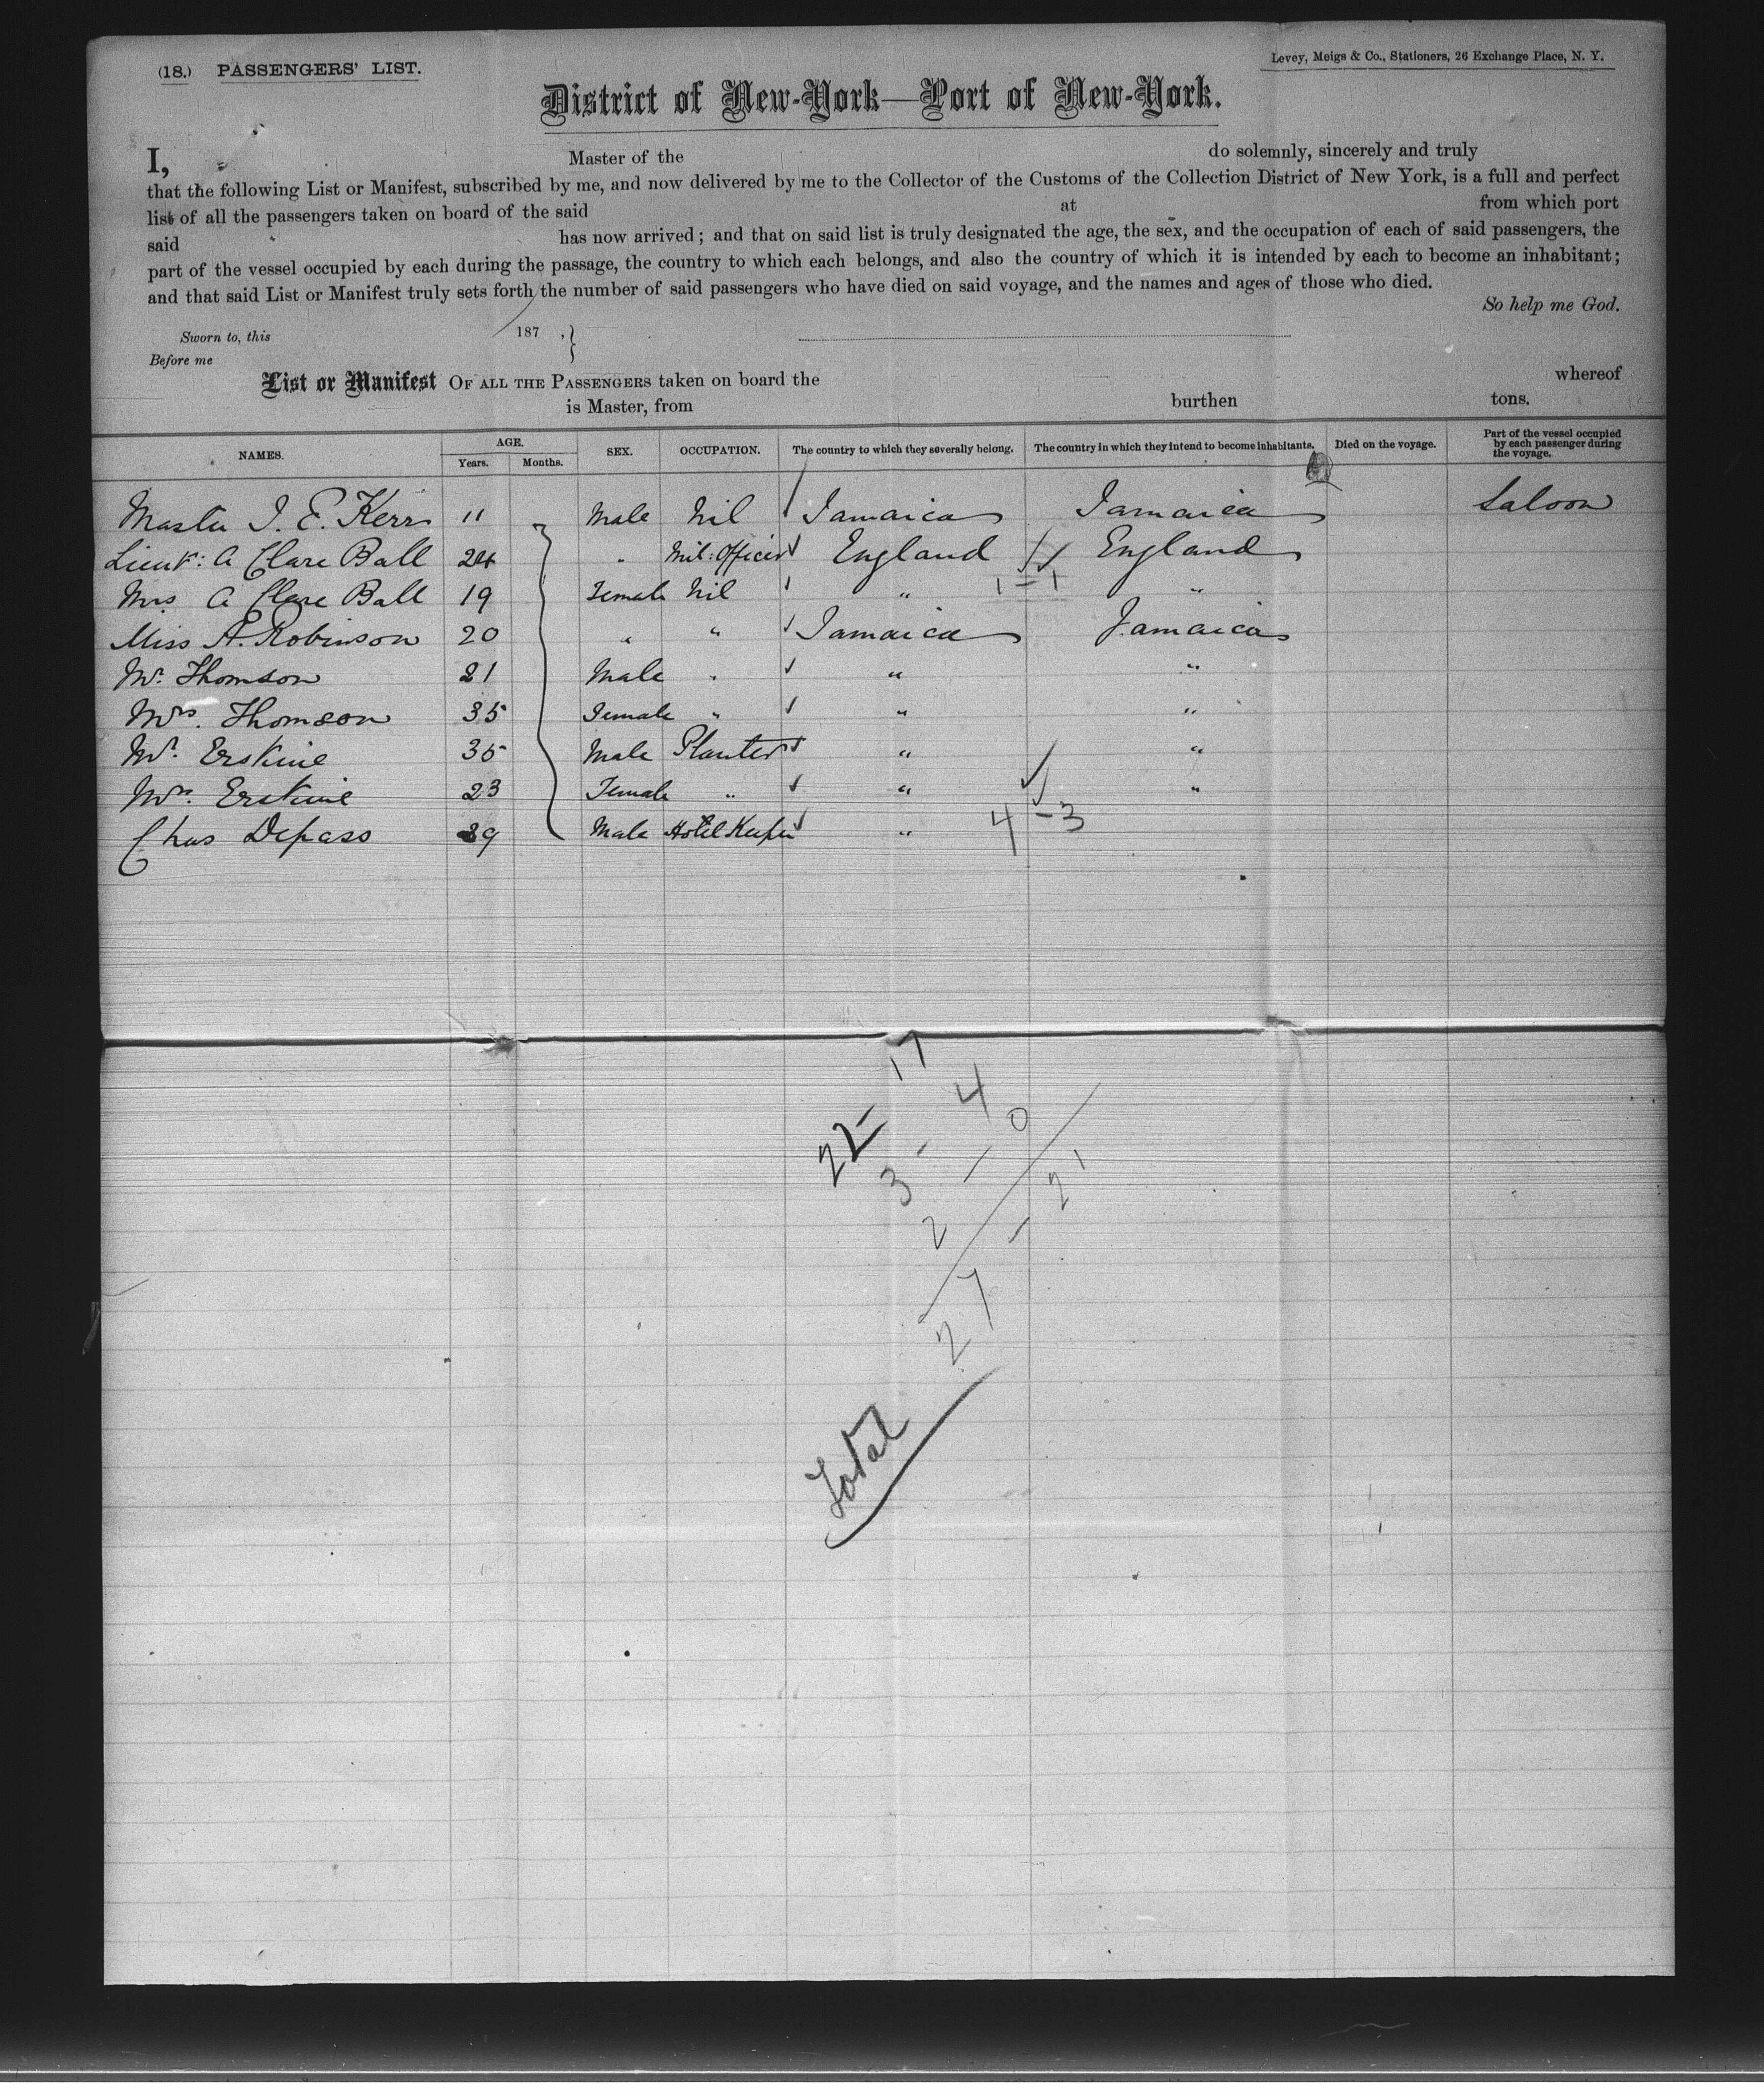 (18.) PASSENGERS' LIST.
Levey, Meigs & Co., Stationers, 26 Exchange Place, N. Y.
District of New-York—Port of New-York.
I, Master of the do solemnly, sincerely and truly
that the following List or Manifest, subscribed by me, and now delivered by me to the Collector of the Customs of the Collection District of New York, is a full and perfect
list of all the passengers taken on board of the said at from which port
said has now arrived; and that on said list is truly designated the age, the sex, and the occupation of each of said passengers, the
part of the vessel occupied by each during the passage, the country to which each belongs, and also the country of which it is intended by each to become an inhabitant;
and that said List or Manifest truly sets forth the number of said passengers who have died on said voyage, and the names and ages of those who died.
So help me God.
Sworn to, this 187 ,}
Before me
List or Manifest OF ALL THE PASSENGERS taken on board the whereof
is Master, from burthen tons.
NAMES. AGE. Years. Months. SEX. OCCUPATION. The country to which they severally belong. The country in which they intend to become inhabitants. Died on the voyage. Part of the vessel occupied by each passenger during the voyage.
Master I. E. Kerr 11 Male Nil Jamaica Jamaica Saloon
Lieut: A Clare Ball 24 " Mil: Officer England England
Mrs A Clare Ball 19 Female Nil " 1-1 "
Miss A. Robinson 20 " " Jamaica Jamaica
Mr. Thomson 21 Male " " "
Mrs. Thomson 35 Female " " "
Mr. Erskine 35 Male Planter " "
Mrs. Erskine 23 Female " " "
Chas Depass 29 Male Hotel Keeper " 4-3
22-17
3-4
2-0
27-21
Total